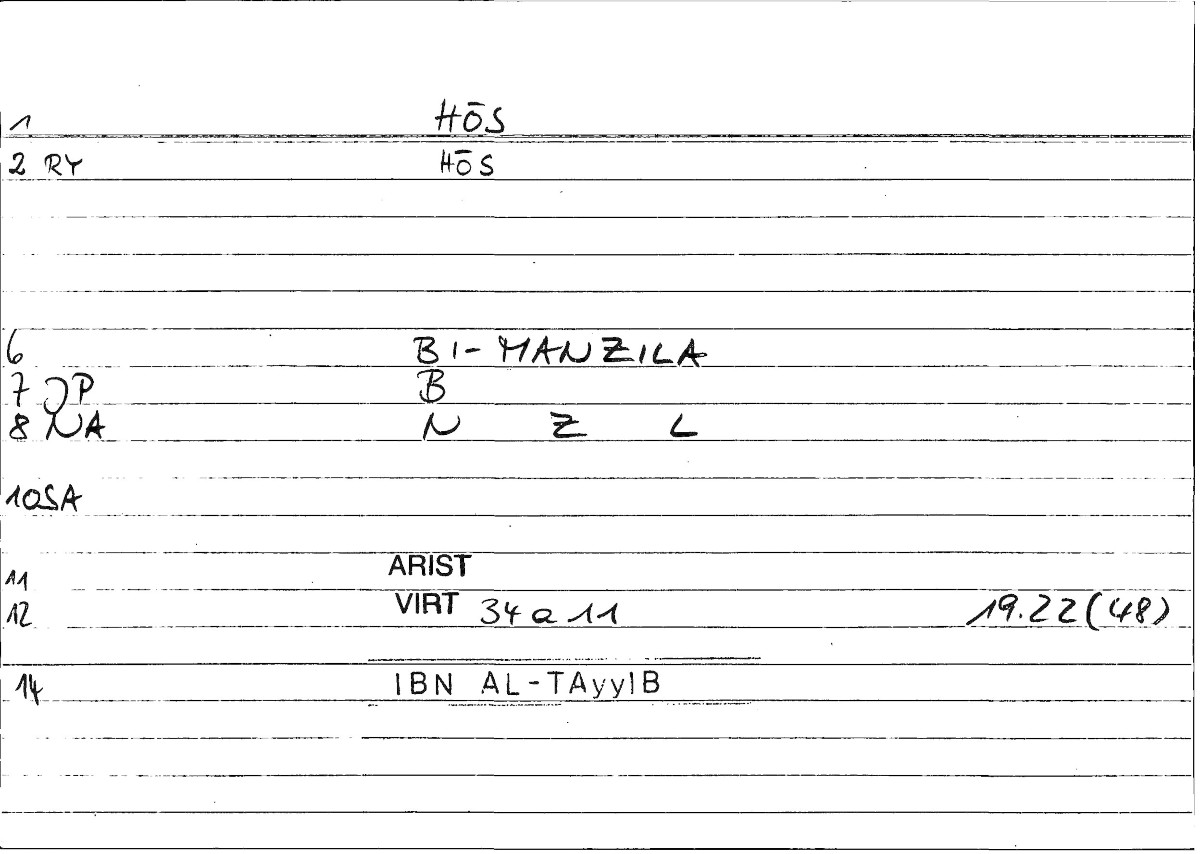 1 HŌS
2 RY HŌS
6 BI-MANZILA
7 JP B
8 NA N Z L
10SA
11 ARIST
12 VIRT 34a11 19.22(48)
14 IBN AL-TAyyIB